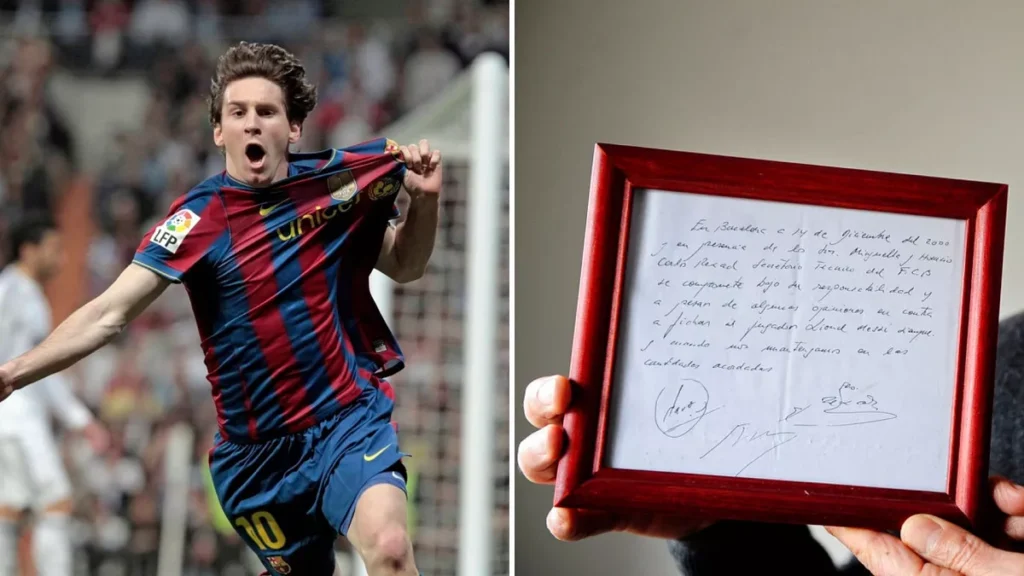 LFP
unicef
10
En Barcelona a 14 de Diciembre del 2000
y en presencia de los Srs. Minguella y Horacio
Carles Rexach Secretario Técnico del F.C.B
se compromete bajo su responsabilidad y
a pesar de algunas opiniones en contra
a fichar al jugador Lionel Messi siempre
y cuando nos mantengamos en las
cantidades acordadas